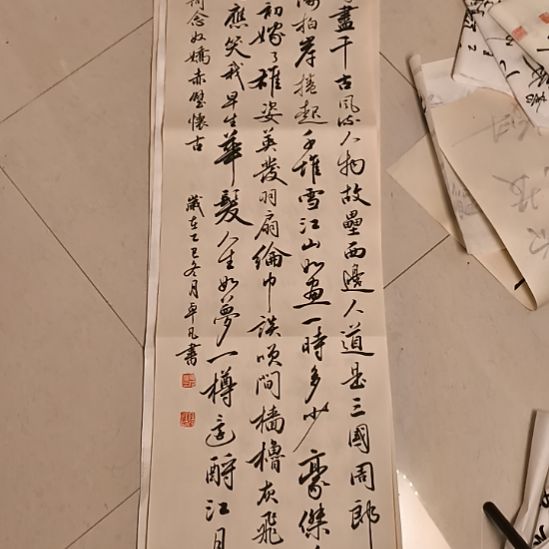 盡千古風流人物故壘西邊人道是三國周郎
拍岸捲起千堆雪江山如畫一時多少豪傑
初嫁了雄姿英發羽扇綸巾談笑間檣櫓灰飛
應笑我早生華髮人生如夢一樽還酹江月
念奴嬌赤壁懷古
歲在乙巳冬月卓凡書